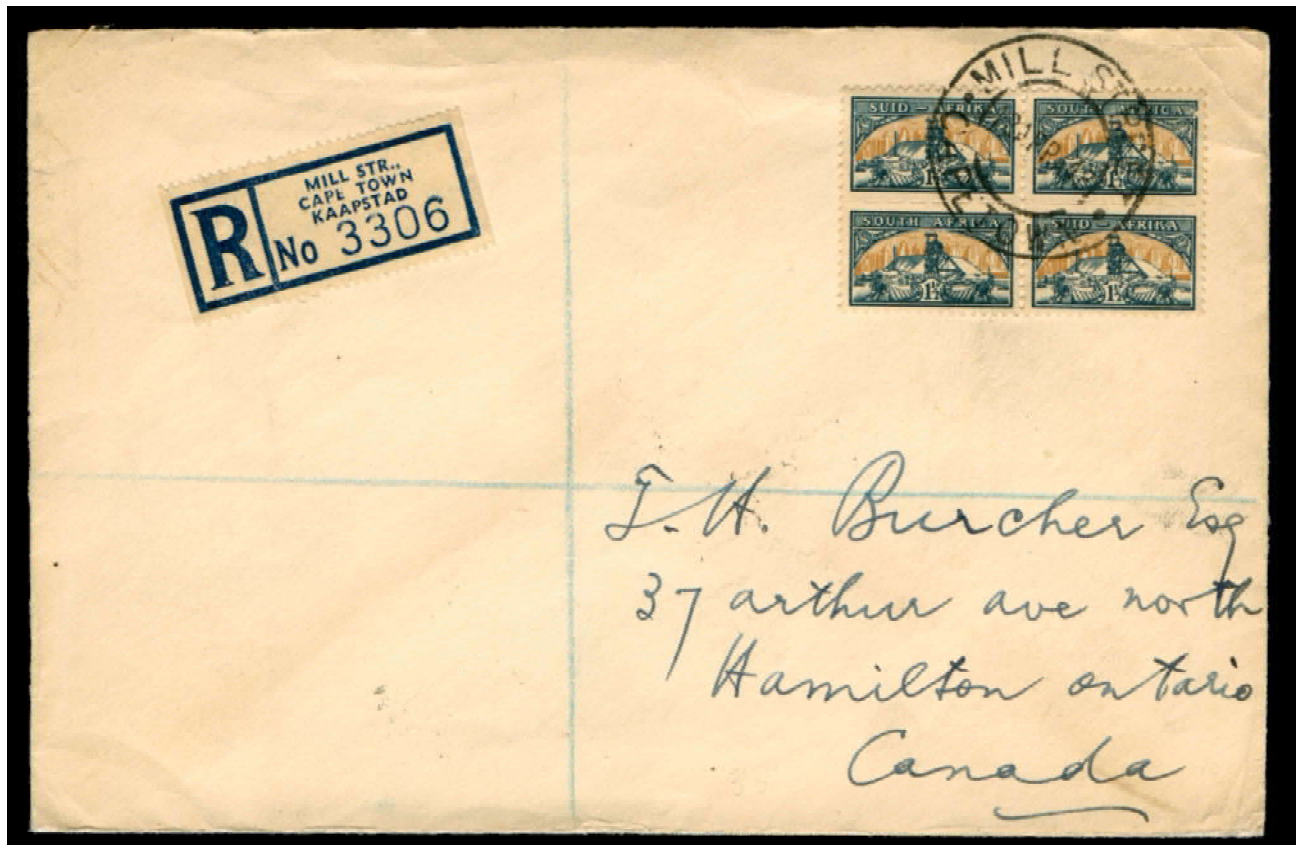 MILL STR.,
CAPE TOWN
KAAPSTAD
R No 3306
MILL STREET
CAPE TOWN
SUID-AFRIKA
1½
SOUTH AFRICA
1½
SOUTH AFRICA
1½
SUID-AFRIKA
1½
T. H. Burcher Esq
37 arthur ave north
Hamilton ontario
Canada